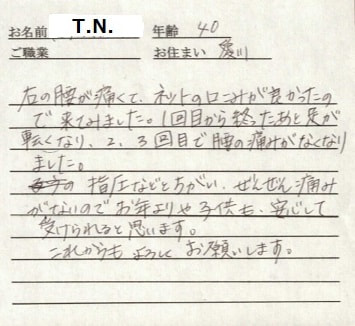 お名前 T.N. 年齢 40
ご職業 お住まい 愛川
右の腰が痛くて、ネットの口コミが良かったの
で来てみました。1回目から終ったあと足が
軽くなり、2、3回目で腰の痛みがなくなり
ました。
の指圧などとちがい、ぜんぜん痛み
がないのでお年よりや子供も、安心して
受けられると思います。
これからもよろしくお願いします。